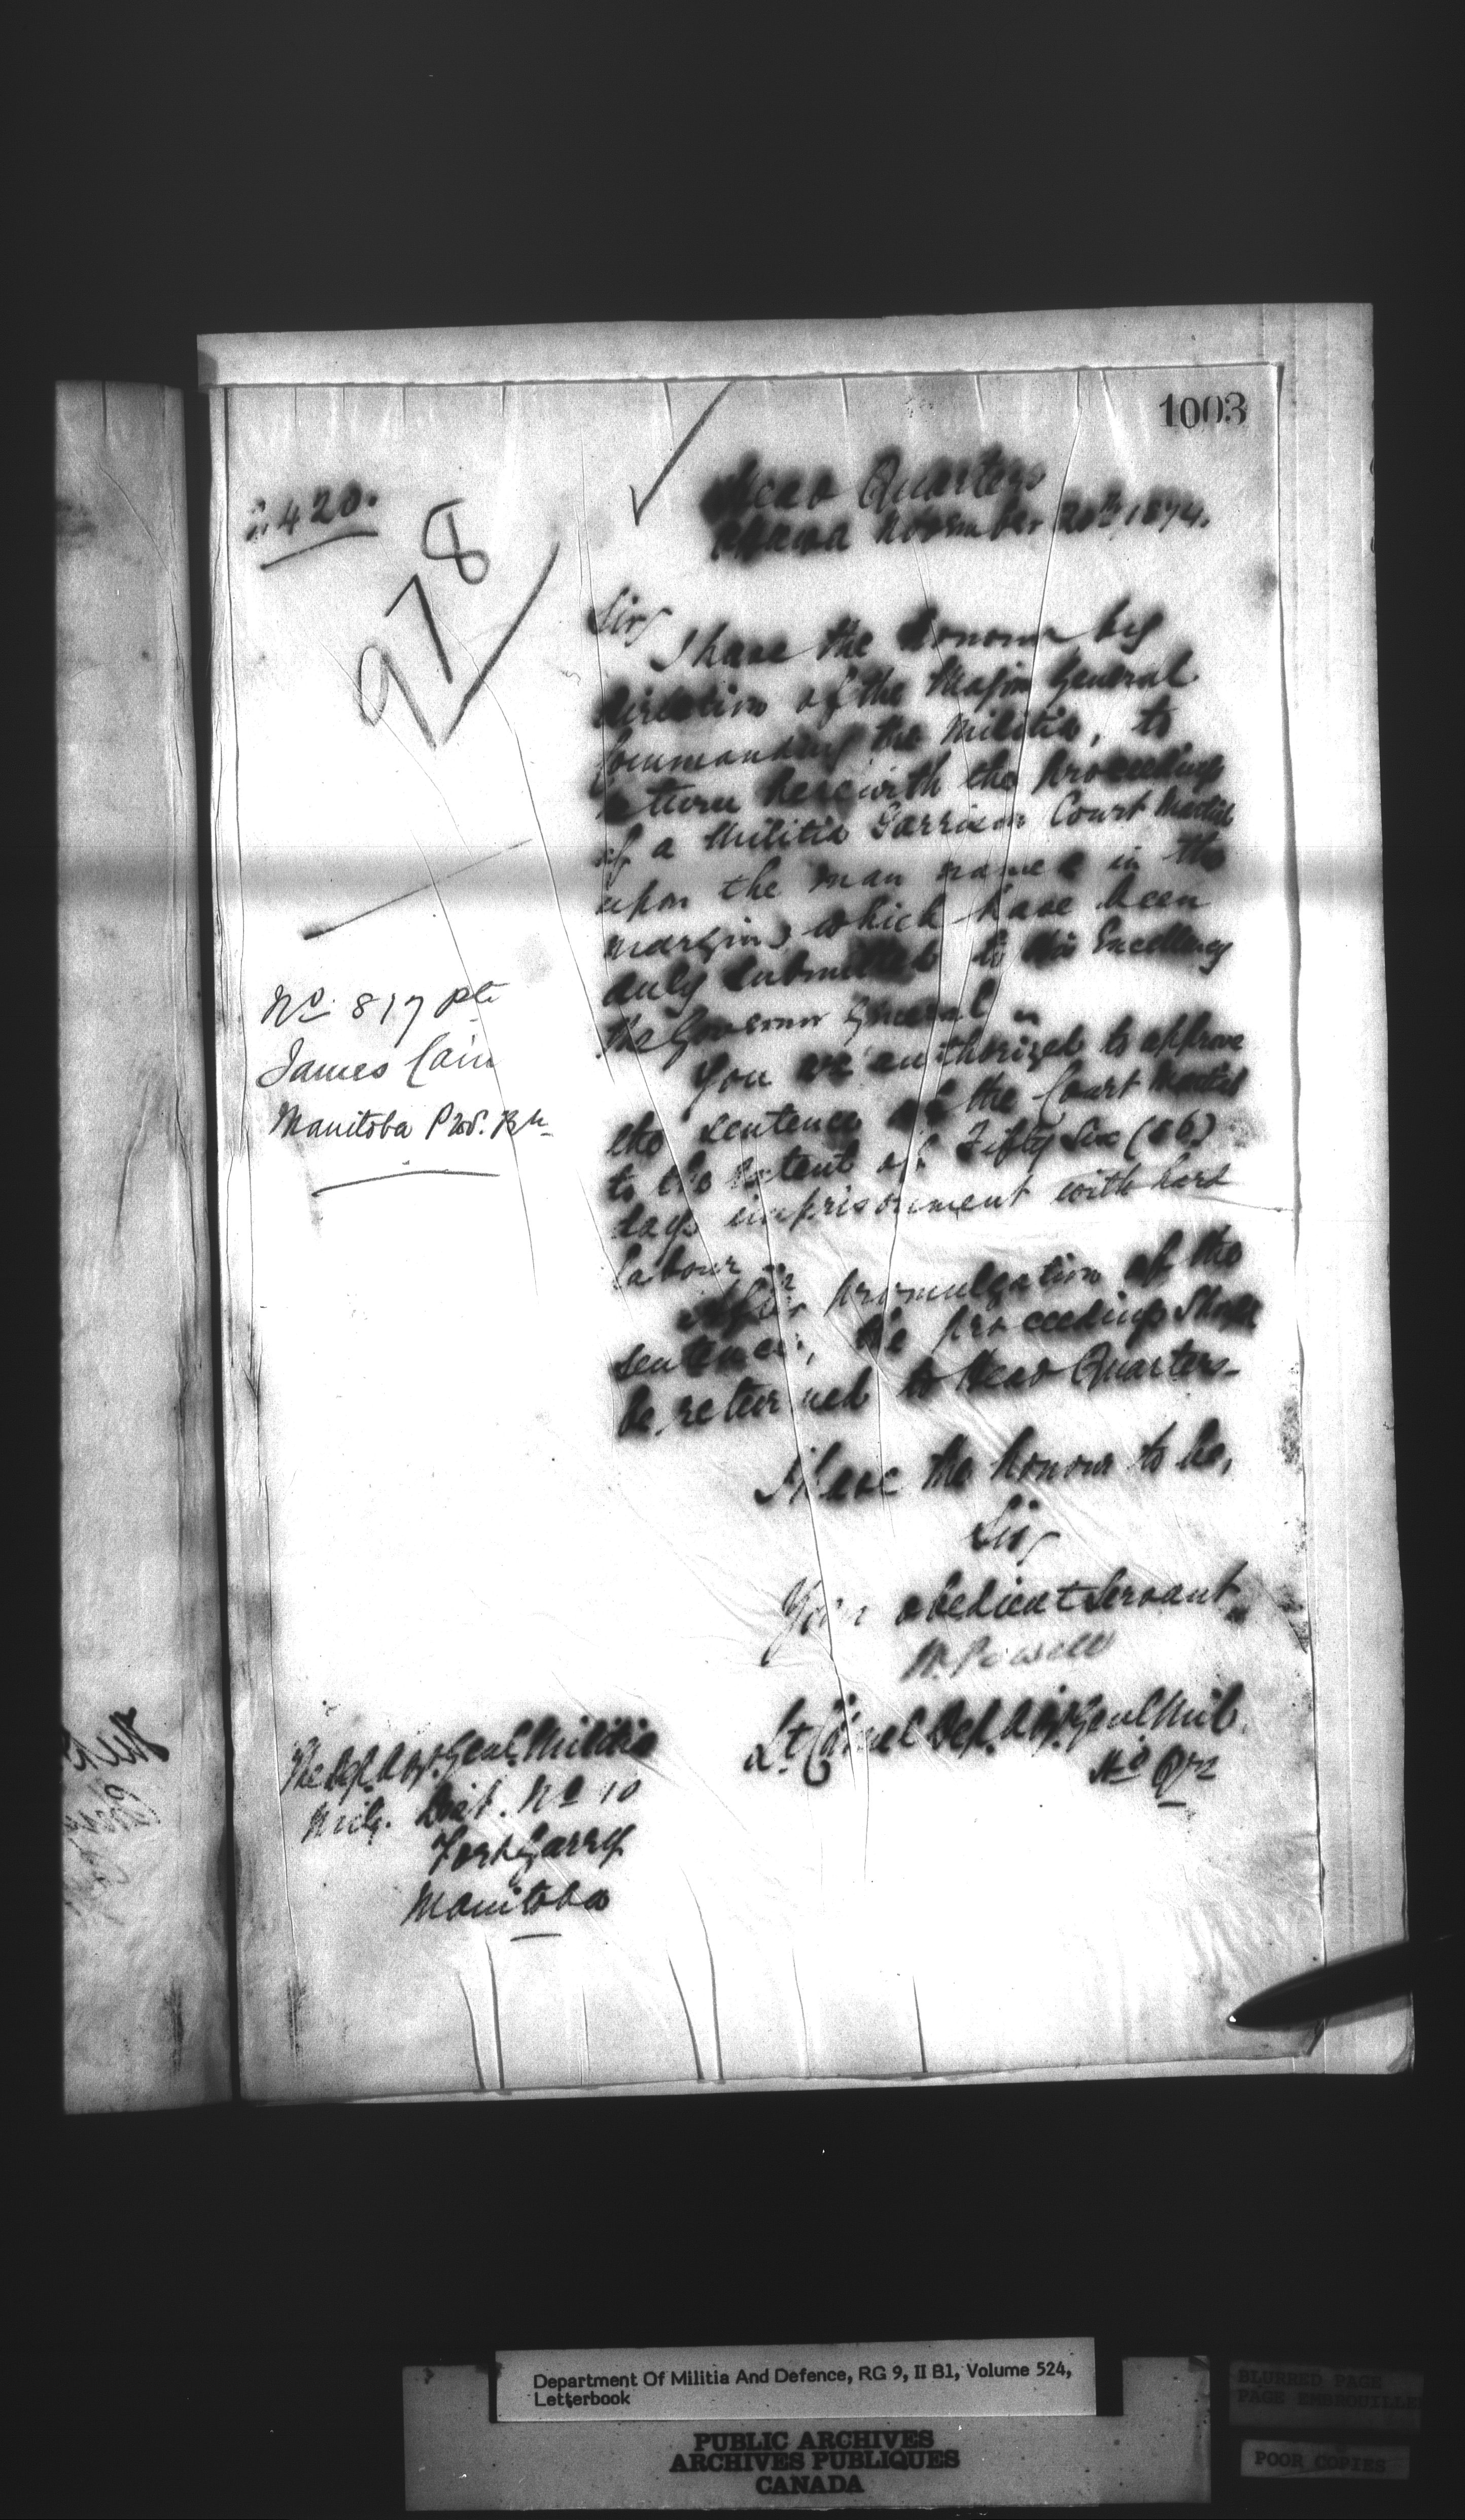 1003
420.
978
Head Quarters
Ottawa November 20th, 1874.
Sir,
I have the honour by
direction of the Major General
Commanding the Militia, to
return herewith the proceedings
of a Militia Garrison Court Martial
upon the man named in the
margin, which have been
duly submitted to His Excellency
the Governor General.
No. 817 Pte
James Cain
Manitoba Prov. Bn.
You are authorized to approve
the sentence of the Court Martial
to the extent of Fifty Six (56)
days imprisonment with hard
labour.
After promulgation of the
sentence, the proceedings should
be returned to Head Quarters.
I have the honour to be,
Sir,
Your obedient Servant
W. Powell
Lt. Colonel Dep. Adjt. Genl. Mil.
Hd. Qrs
The Dep. Adjt. Genl. Militia
Mily. Dist. No 10
Fort Garry
Manitoba
Department Of Militia And Defence, RG 9, II B1, Volume 524,
Letterbook
PUBLIC ARCHIVES
ARCHIVES PUBLIQUES
CANADA
BLURRED PAGE
PAGE EMBROUILLEE
POOR COPIES